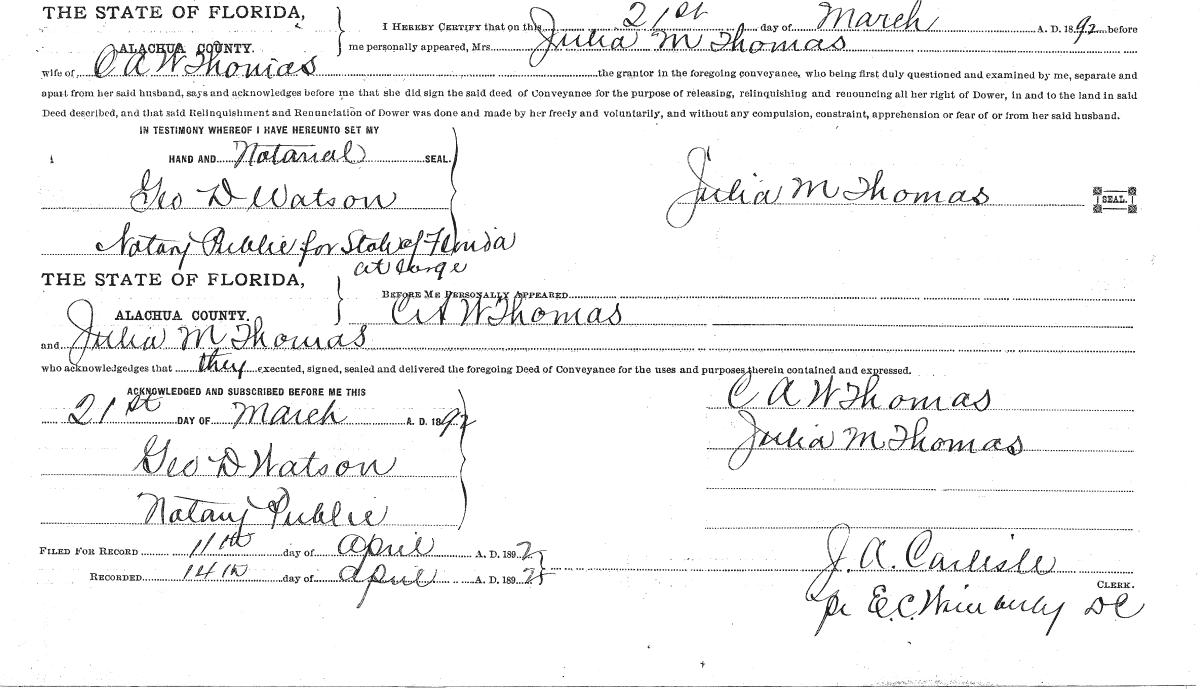 THE STATE OF FLORIDA,
I HEREBY CERTIFY that on this 21st day of March A. D. 1892 before
ALACHUA COUNTY.
me personally appeared, Mrs. Julia M Thomas
wife of C A W Thomas the grantor in the foregoing conveyance, who being first duly questioned and examined by me, separate and
apart from her said husband, says and acknowledges before me that she did sign the said deed of Conveyance for the purpose of releasing, relinquishing and renouncing all her right of Dower, in and to the land in said
Deed described, and that said Relinquishment and Renunciation of Dower was done and made by her freely and voluntarily, and without any compulsion, constraint, apprehension or fear of or from her said husband.
IN TESTIMONY WHEREOF I HAVE HEREUNTO SET MY
HAND AND Notarial SEAL.
Geo D Watson
Julia M Thomas SEAL.
Notary Public for State of Florida
at Large
THE STATE OF FLORIDA,
BEFORE ME PERSONALLY APPEARED
ALACHUA COUNTY.
C A W Thomas
and Julia M Thomas
who acknowledges that they executed, signed, sealed and delivered the foregoing Deed of Conveyance for the uses and purposes therein contained and expressed.
ACKNOWLEDGED AND SUBSCRIBED BEFORE ME THIS
21st DAY OF March A. D. 1892
C A W Thomas
Julia M Thomas
Geo D Watson
Notary Public
FILED FOR RECORD 11th day of April A. D. 1892
RECORDED 14th day of April A. D. 189
J. A. Carlisle
CLERK.
pr E. C. Wimberly DC